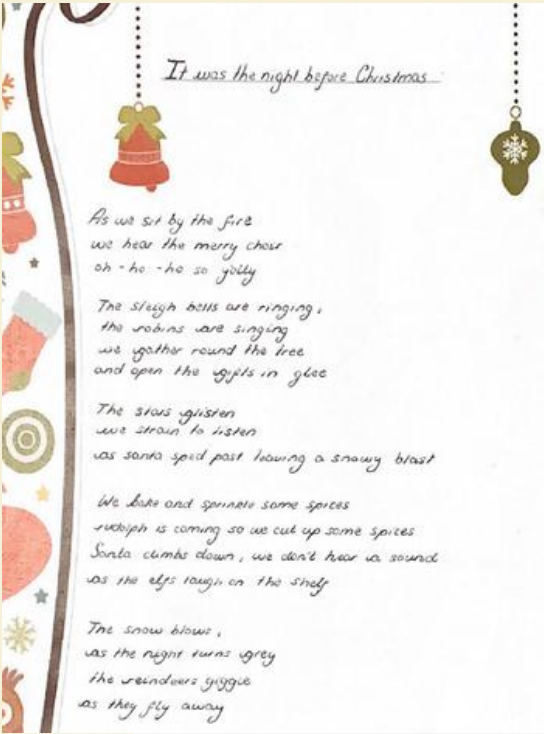 It was the night before Christmas
As we sit by the fire
we hear the merry choir
oh-ho-ho so jolly
The sleigh bells are ringing,
the robins are singing
we gather round the tree
and open the gifts in glee
The stars glisten
we strain to listen
as santa sped past leaving a snowy blast
We bake and sprinkle some spices
rudolph is coming so we cut up some spices
Santa climbs down, we don't hear a sound
as the elfs laugh on the shelf
The snow blows,
as the night turns grey
the reindeers giggle
as they fly away